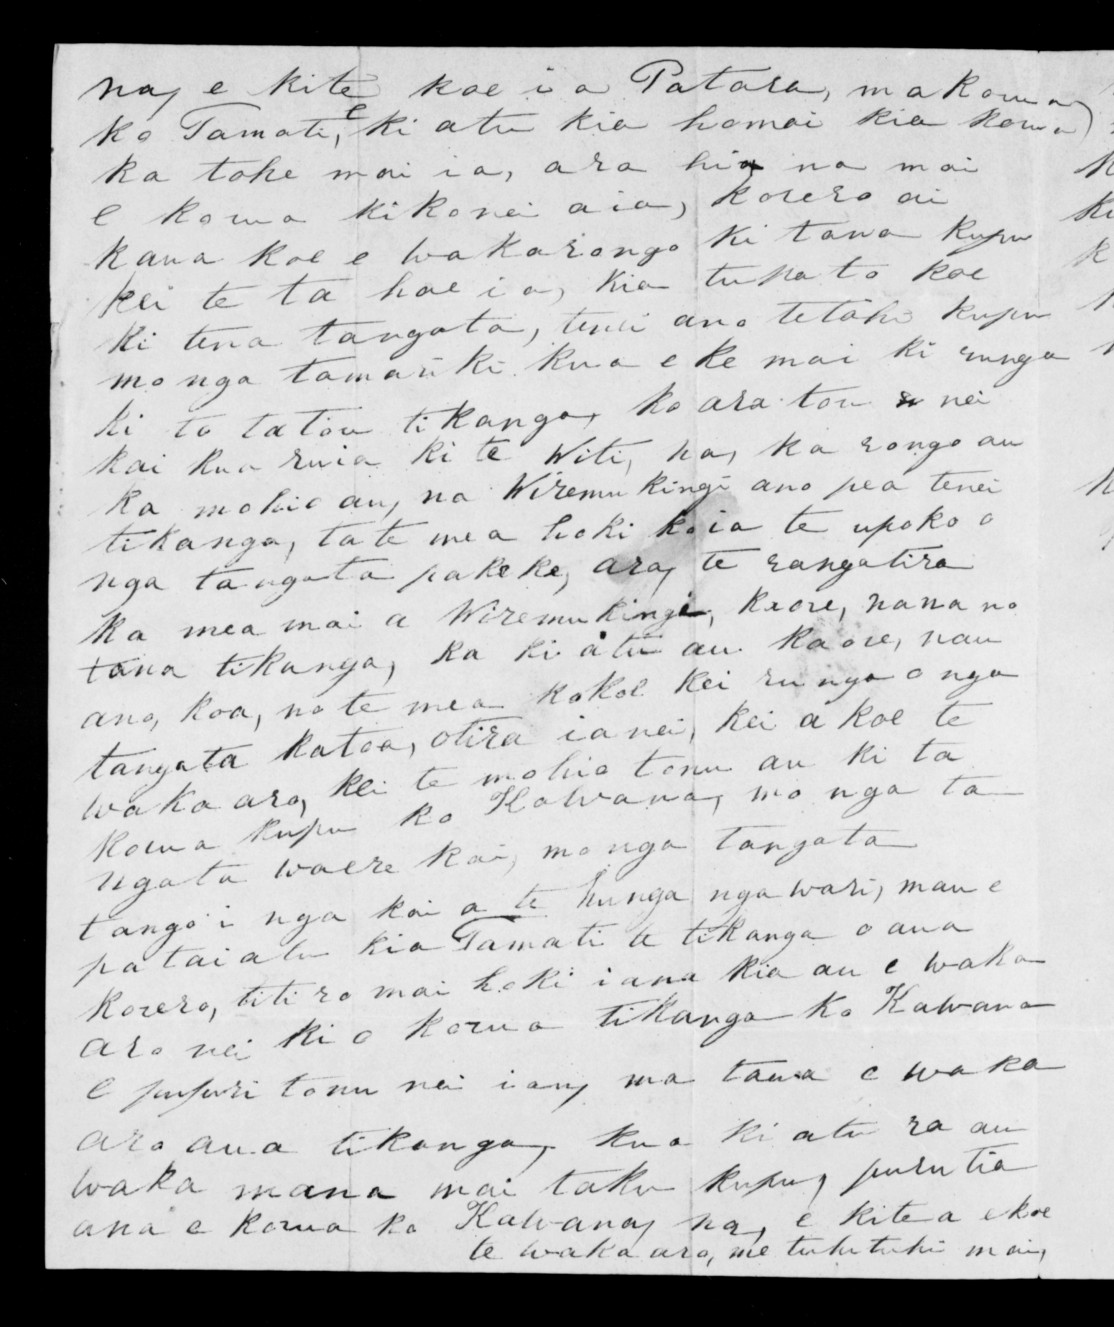 na, e kite koe i a Patara, ma korua
ko Tamati, e ki atu kia homai kia korua
ka tohe mai ia, ara hia na mai
e korua ki konei a ia, korero ai
kaua koe e wakarongo ki tana kupu
kei te ta hae i a, kia tupato koe
ki tena tangata, tenei ano tetahi kupu
mo nga tamariki kua eke mai ki runga
ki to tatou tikanga, ko ara tou nei
kai kua ruia ki te Witi, ha, ka rongo au
ka mohio au, na Wiremu kingi ano pea tenei
tikanga, ta te mea hoki ko ia te upoko o
nga tangata pakeke, ara, te rangatira
ka mea mai a Wiremu kingi, kaore, nana no
tana tikanga, ka ki atu au kaore, nau
ano, koa, no te mea ko koe kei runga o nga
tangata katoa, otira ia nei, kei a koe te
wakaaro, kei te mohio tonu au ki ta
korua kupu ko Kawana, mo nga ta
ngata waere kai, mo nga tangata
tango i nga kai a te hunga ngawari, mau e
patai atu kia Tamati te tikanga o ana
korero, titiro mai hoki i ana kia au e waka
aro nei ki o korua tikanga ko Kawana
e pupuri tonu nei i au, ma taua e waka
aro aua tikanga, kua ki atu ra au
waka mana mai taku kupu, purutia
ana e korua ko Kawana, na, e kitea e koe
te wakaaro, me tuhituhi mai,